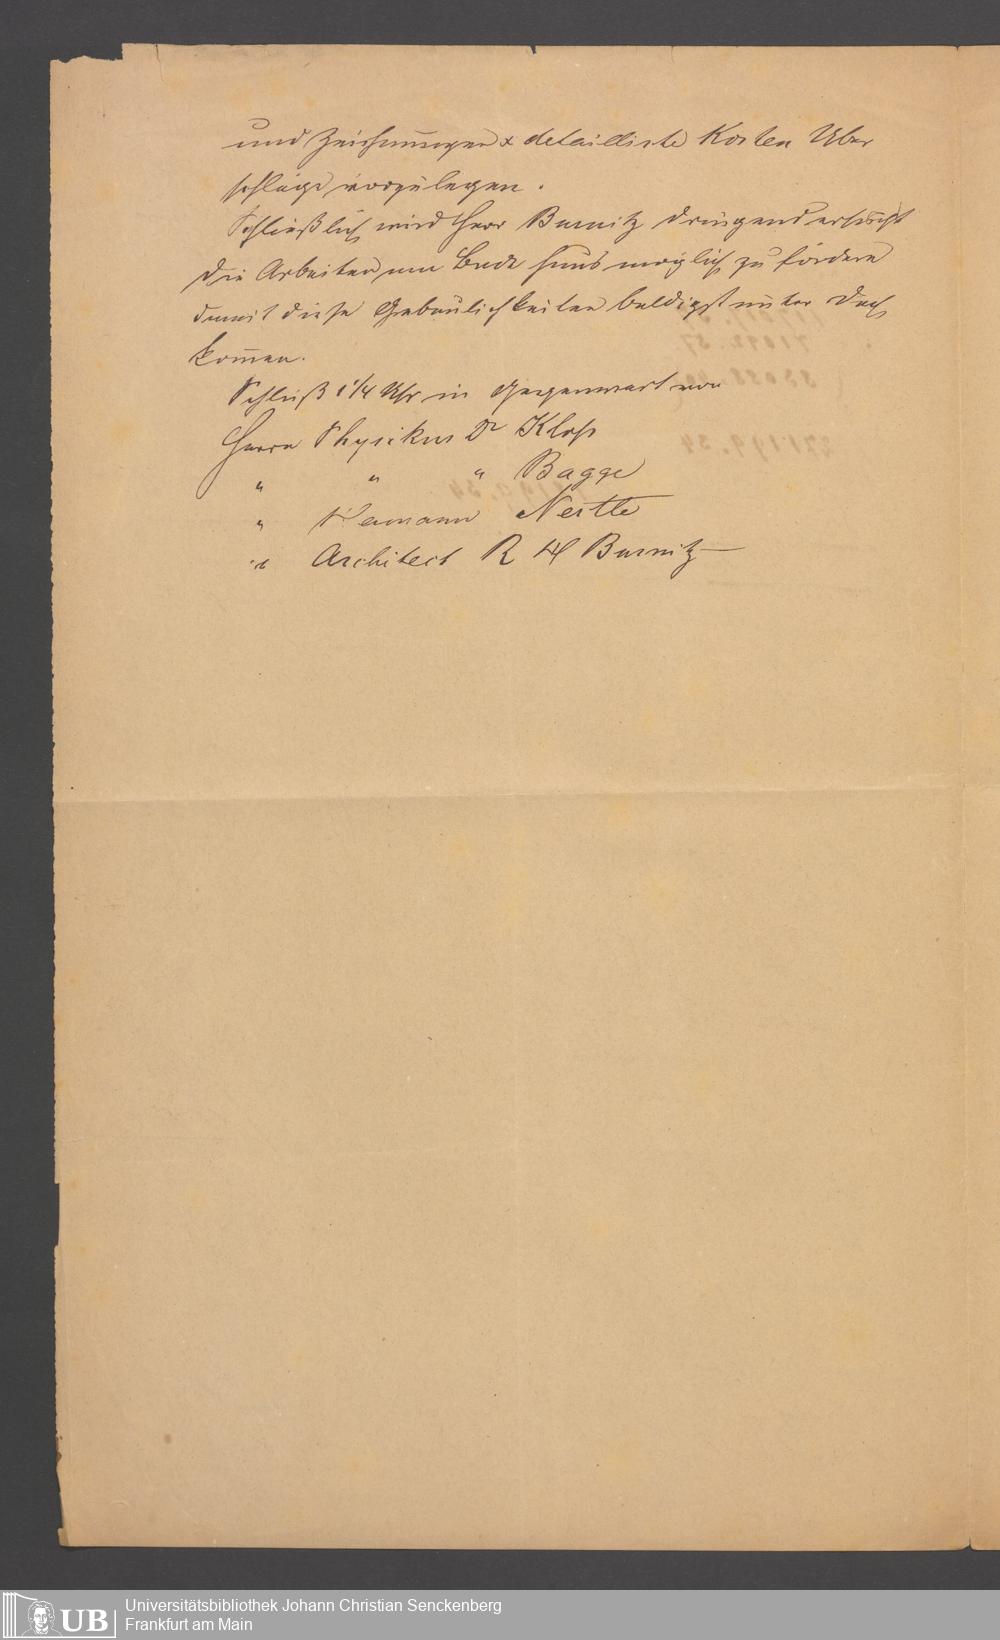 und Zeichnungen & detaillirte Kosten Über
schläge vorzulegen.
Schließlich wird Herr Burnitz dringend ersucht
die Arbeiten am Bade Haus möglich zu fördern
damit diese Gebäulichkeiten baldigst unter Dach
kom̅en.
Schluß 1 1/4 Uhr in Gegenwart von
Herrn Physikus Dr Kloß
" " " Bagge
" Hermann Nestle
" Architect R H Burnitz
UB
Universitätsbibliothek Johann Christian Senckenberg
Frankfurt am Main